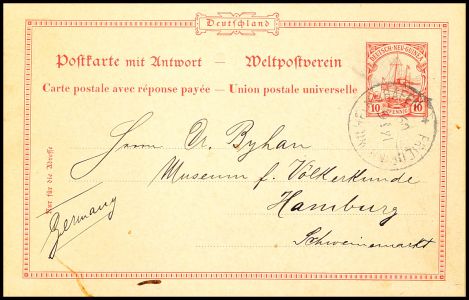 Deutschland
Postkarte mit Antwort — Weltpostverein
Carte postale avec réponse payée — Union postale universelle
DEUTSCH-NEU-GUINEA
10 PFENNIG 10
Nur für die Adresse
Herrn Dr. Byhan
Museum f. Völkerkunde
Hamburg
Schweinemarkt
Germany